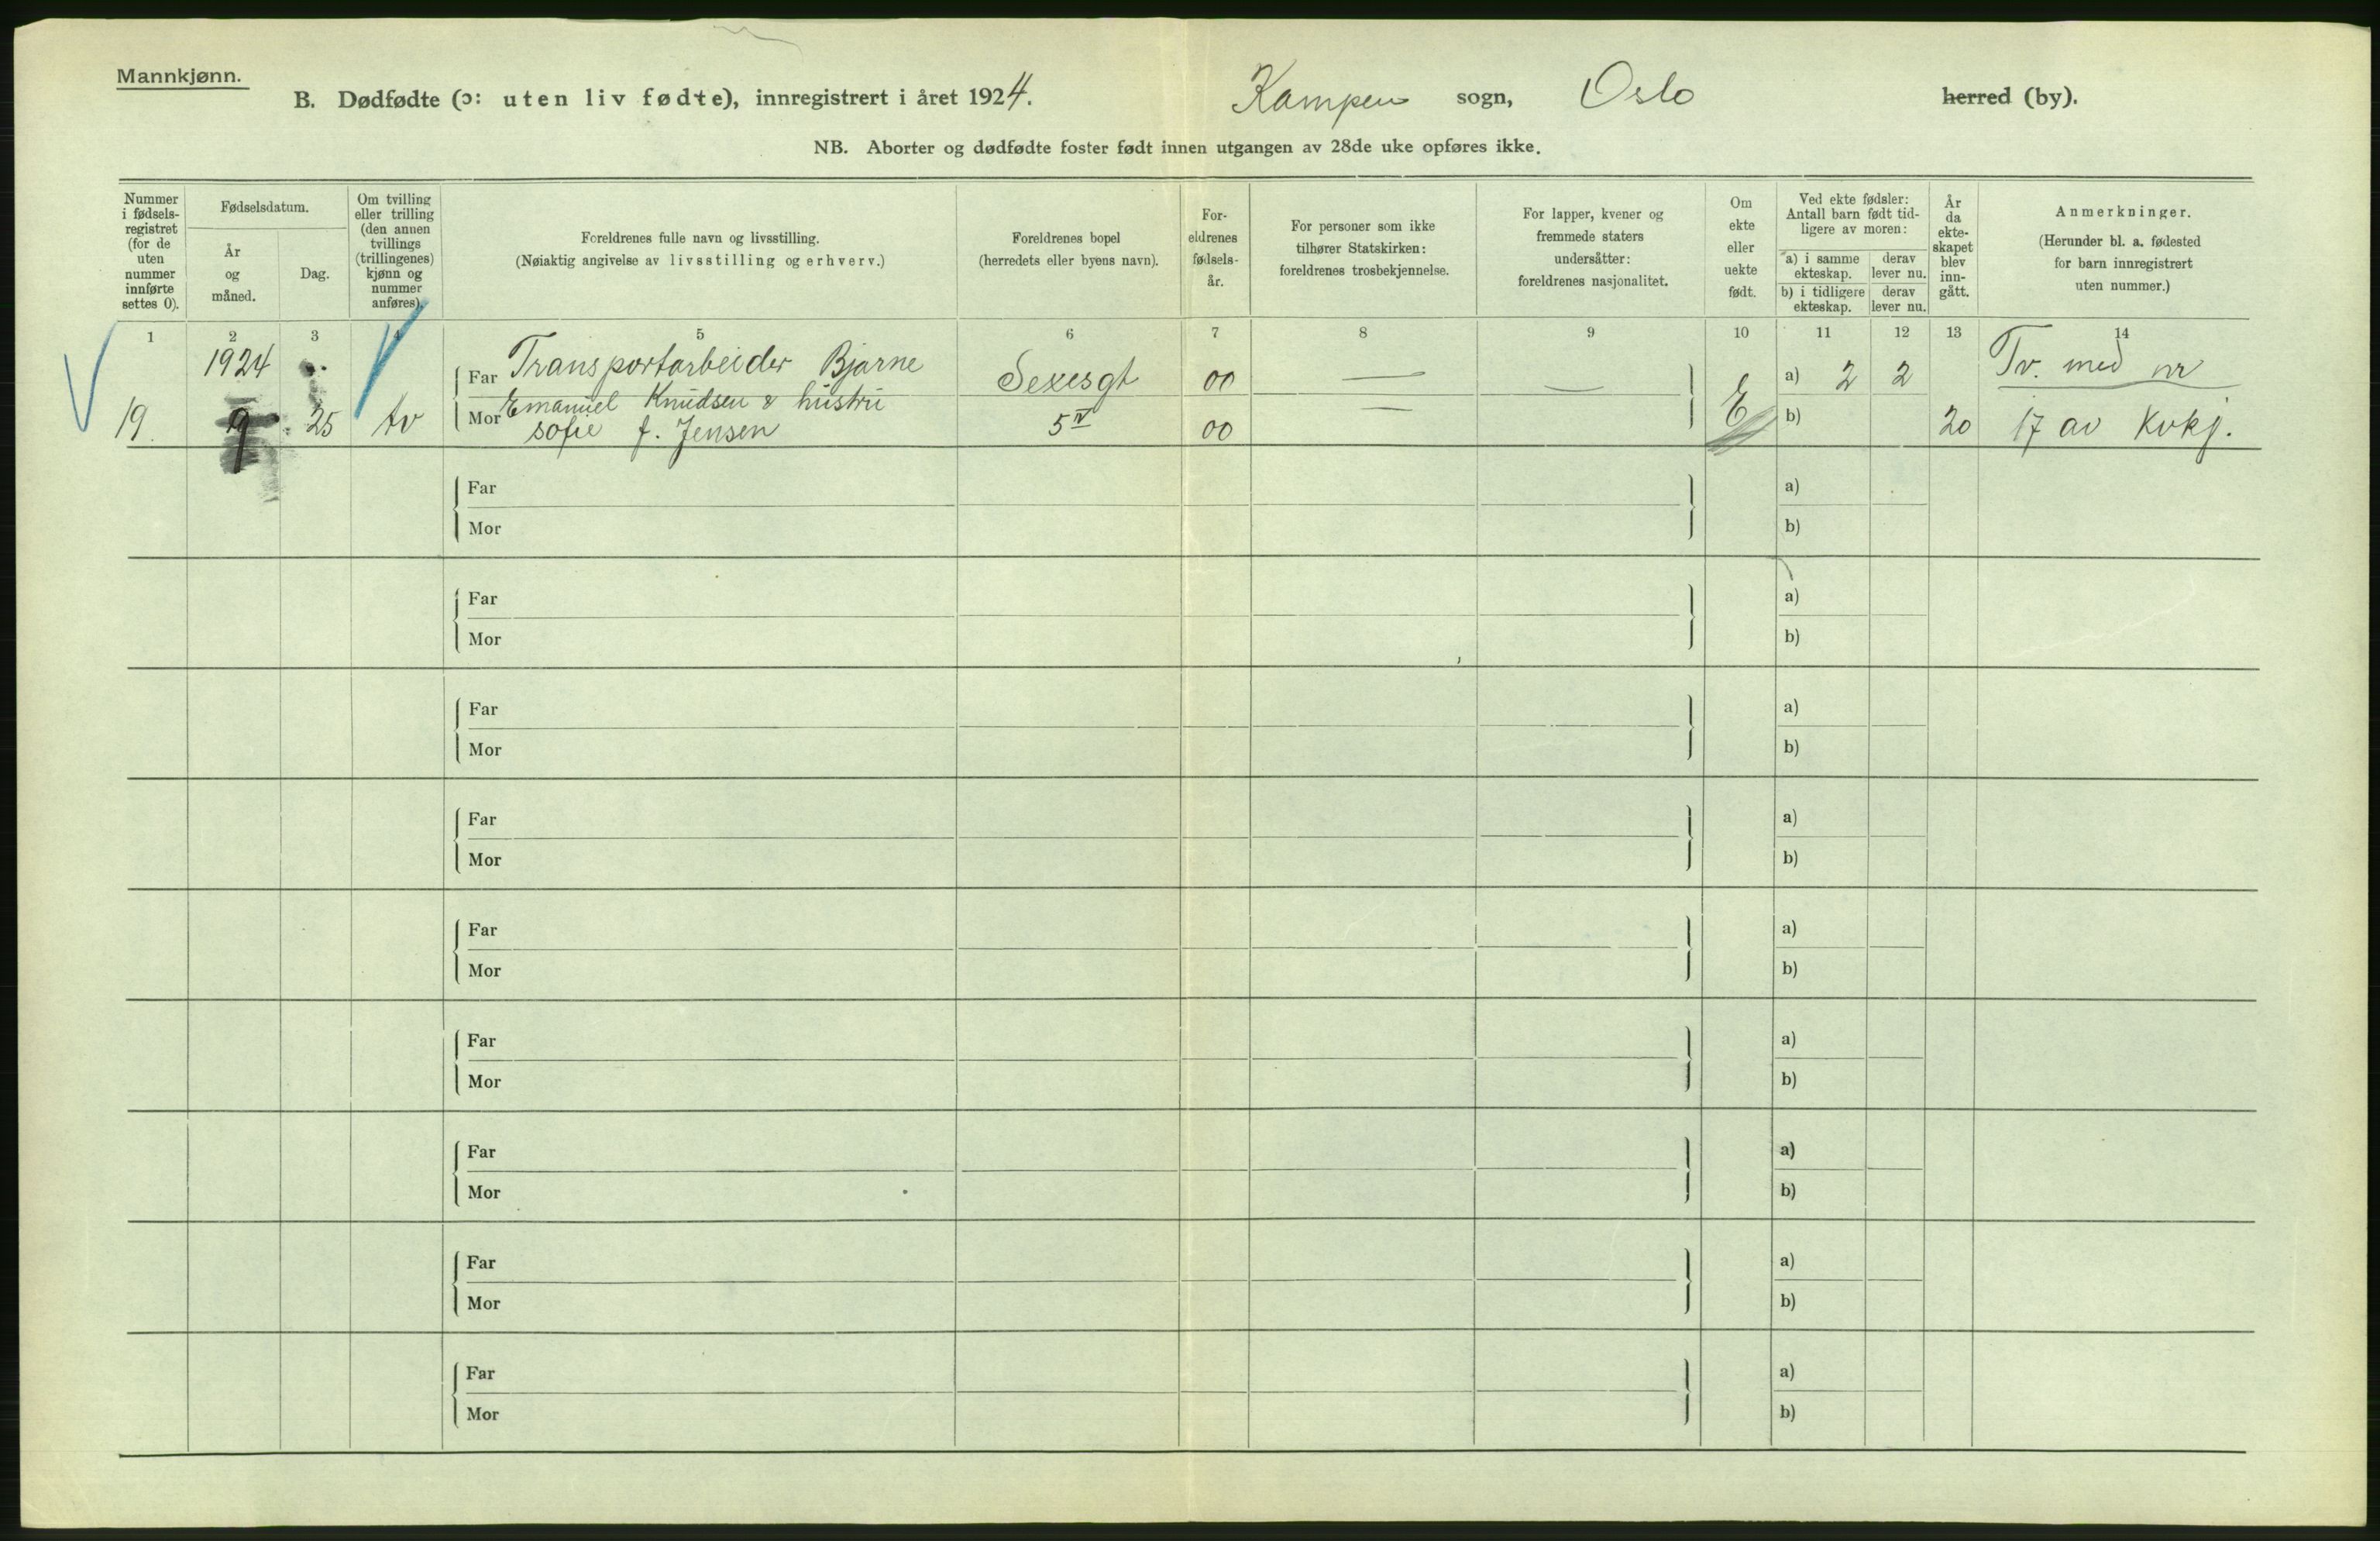 Mannkjønn.
B. Dødfødte (ɔ: uten liv fødte), innregistrert i året 1924. Kampen sogn, Oslo herred (by).
NB. Aborter og dødfødte foster født innen utgangen av 28de uke opføres ikke.
Nummer i fødsels-registret (for de uten nummer innførte settes 0).
Fødselsdatum.
År og måned.
Dag.
Om tvilling eller trilling (den annen tvillings (trillingenes) kjønn og nummer anføres).
Foreldrenes fulle navn og livsstilling.
(Nøiaktig angivelse av livsstilling og erhverv.)
Foreldrenes bopel
(herredets eller byens navn).
For-eldrenes fødsels-år.
For personer som ikke tilhører Statskirken: foreldrenes trosbekjennelse.
For lapper, kvener og fremmede staters undersåtter: foreldrenes nasjonalitet.
Om ekte eller uekte født.
Ved ekte fødsler: Antall barn født tid-ligere av moren:
a) i samme ekteskap.
derav lever nu.
b) i tidligere ekteskap.
derav lever nu.
År da ekte-skapet blev inn-gått.
Anmerkninger.
(Herunder bl. a. fødested for barn innregistrert uten nummer.)
1 2 3 4 5 6 7 8 9 10 11 12 13 14
1924 Far Transportarbeider Bjarne Sexesgt 00 — — a) 2 2 Tv. med nr
19. 9 25 tv Mor Emanuel Knudsen & hustru 5 IV — E b) 20 17 av Kvkj.
Sofie f. Jensen 00
Far a)
Mor b)
Far a)
Mor b)
Far a)
Mor b)
Far a)
Mor b)
Far a)
Mor b)
Far a)
Mor b)
Far a)
Mor b)
Far a)
Mor b)
Far a)
Mor b)